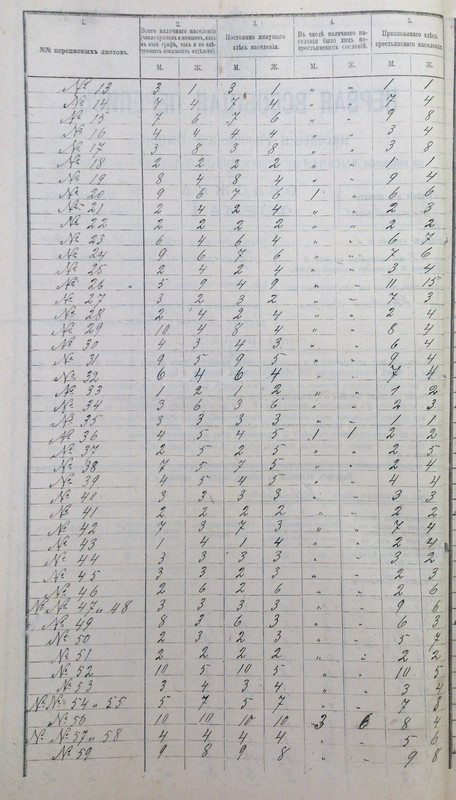 1. 2. 3. 4. 5.
№№ переписныхъ листовъ. Всего наличнаго населенія Постоянно живущаго здѣсь населенія. Въ числѣ наличнаго населенія было лицъ не-крестьянскихъ сословій. Приписаннаго здѣсь крестьянскаго населенія
М. Ж. М. Ж. М. Ж. М. Ж.
№ 13 3 1 3 1 „ 1 1
№ 14 7 4 7 4 „ „ 7 4
№ 15 7 6 7 6 „ „ 9 8
№ 16 4 4 4 4 „ „ 3 4
№ 17 3 8 3 8 „ „ 3 8
№ 18 2 2 2 2 „ „ 1 1
№ 19 8 4 8 4 „ „ 9 4
№ 20 9 6 7 6 1 „ 6 6
№ 21 2 4 2 4 „ „ 2 3
№ 22 2 2 2 2 „ „ 2 2
№ 23 6 4 6 4 „ „ 6 7
№ 24 9 6 7 6 „ „ 7 6
№ 25 2 4 2 4 „ „ 3 4
№ 26 5 9 4 9 „ „ 11 15
№ 27 3 2 3 2 „ „ 7 3
№ 28 2 4 2 4 „ „ 2 4
№ 29 10 4 8 4 „ „ 8 4
№ 30 4 3 4 3 „ „ 6 4
№ 31 9 5 9 5 „ „ 9 4
№ 32 6 4 6 4 „ „ 7 4
№ 33 1 2 1 2 „ „ 1 2
№ 34 3 6 3 6 „ „ 2 3
№ 35 3 3 3 3 „ „ 1 1
№ 36 4 5 4 5 1 1 2 2
№ 37 2 5 2 5 „ „ 2 5
№ 38 7 5 7 5 „ „ 2 4
№ 39 4 5 4 5 „ „ 4 4
№ 40 3 3 3 3 „ „ 3 3
№ 41 2 2 2 2 „ „ 2 2
№ 42 7 3 7 3 „ „ 7 4
№ 43 1 4 1 4 „ „ 2 4
№ 44 3 3 3 3 „ „ 3 2
№ 45 3 3 2 3 „ „ 2 3
№ 46 2 6 2 6 „ „ 2 6
№№ 47 и 48 3 3 3 3 „ „ 9 6
№ 49 8 3 6 3 „ „ 6 3
№ 50 2 3 2 3 „ „ 5 7
№ 51 2 2 2 2 „ „ 2 2
№ 52 10 5 10 5 „ „ 10 5
№ 53 3 4 3 4 „ „ 3 4
№№ 54 и 55 5 7 5 7 „ „ 7 8
№ 56 10 10 10 10 3 6 8 4
№№ 57 и 58 4 4 4 4 „ „ 5 6
№ 59 9 8 9 8 „ „ 9 8